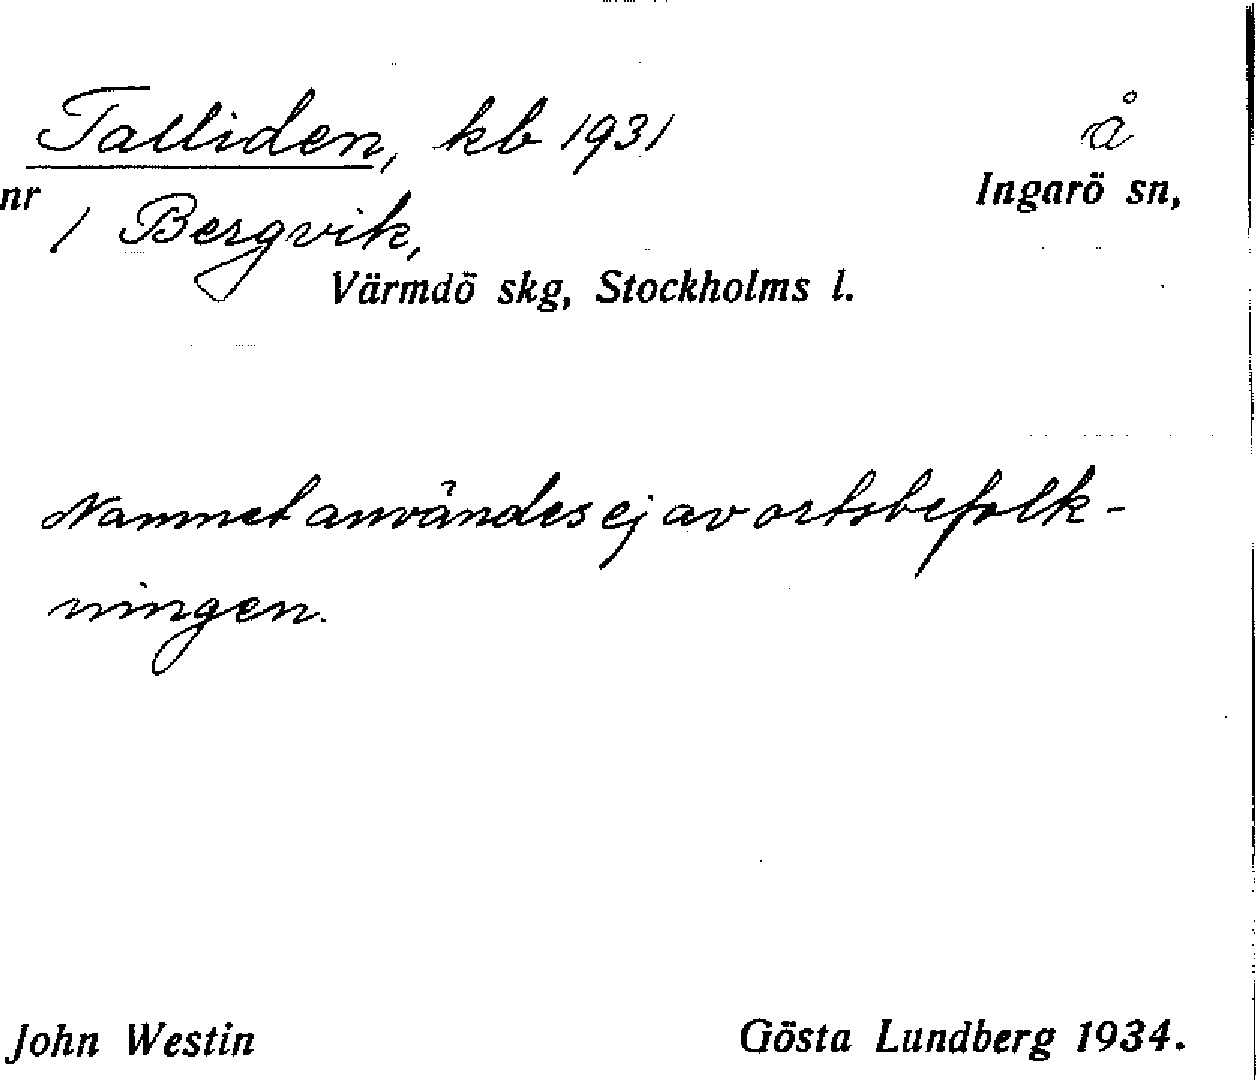 Talliden, kb 1931 å
nr 1 Bergvik, Ingarö sn,
Värmdö skg, Stockholms l.
Namnet användes ej av ortsbefolk-
ningen.
John Westin Gösta Lundberg 1934.